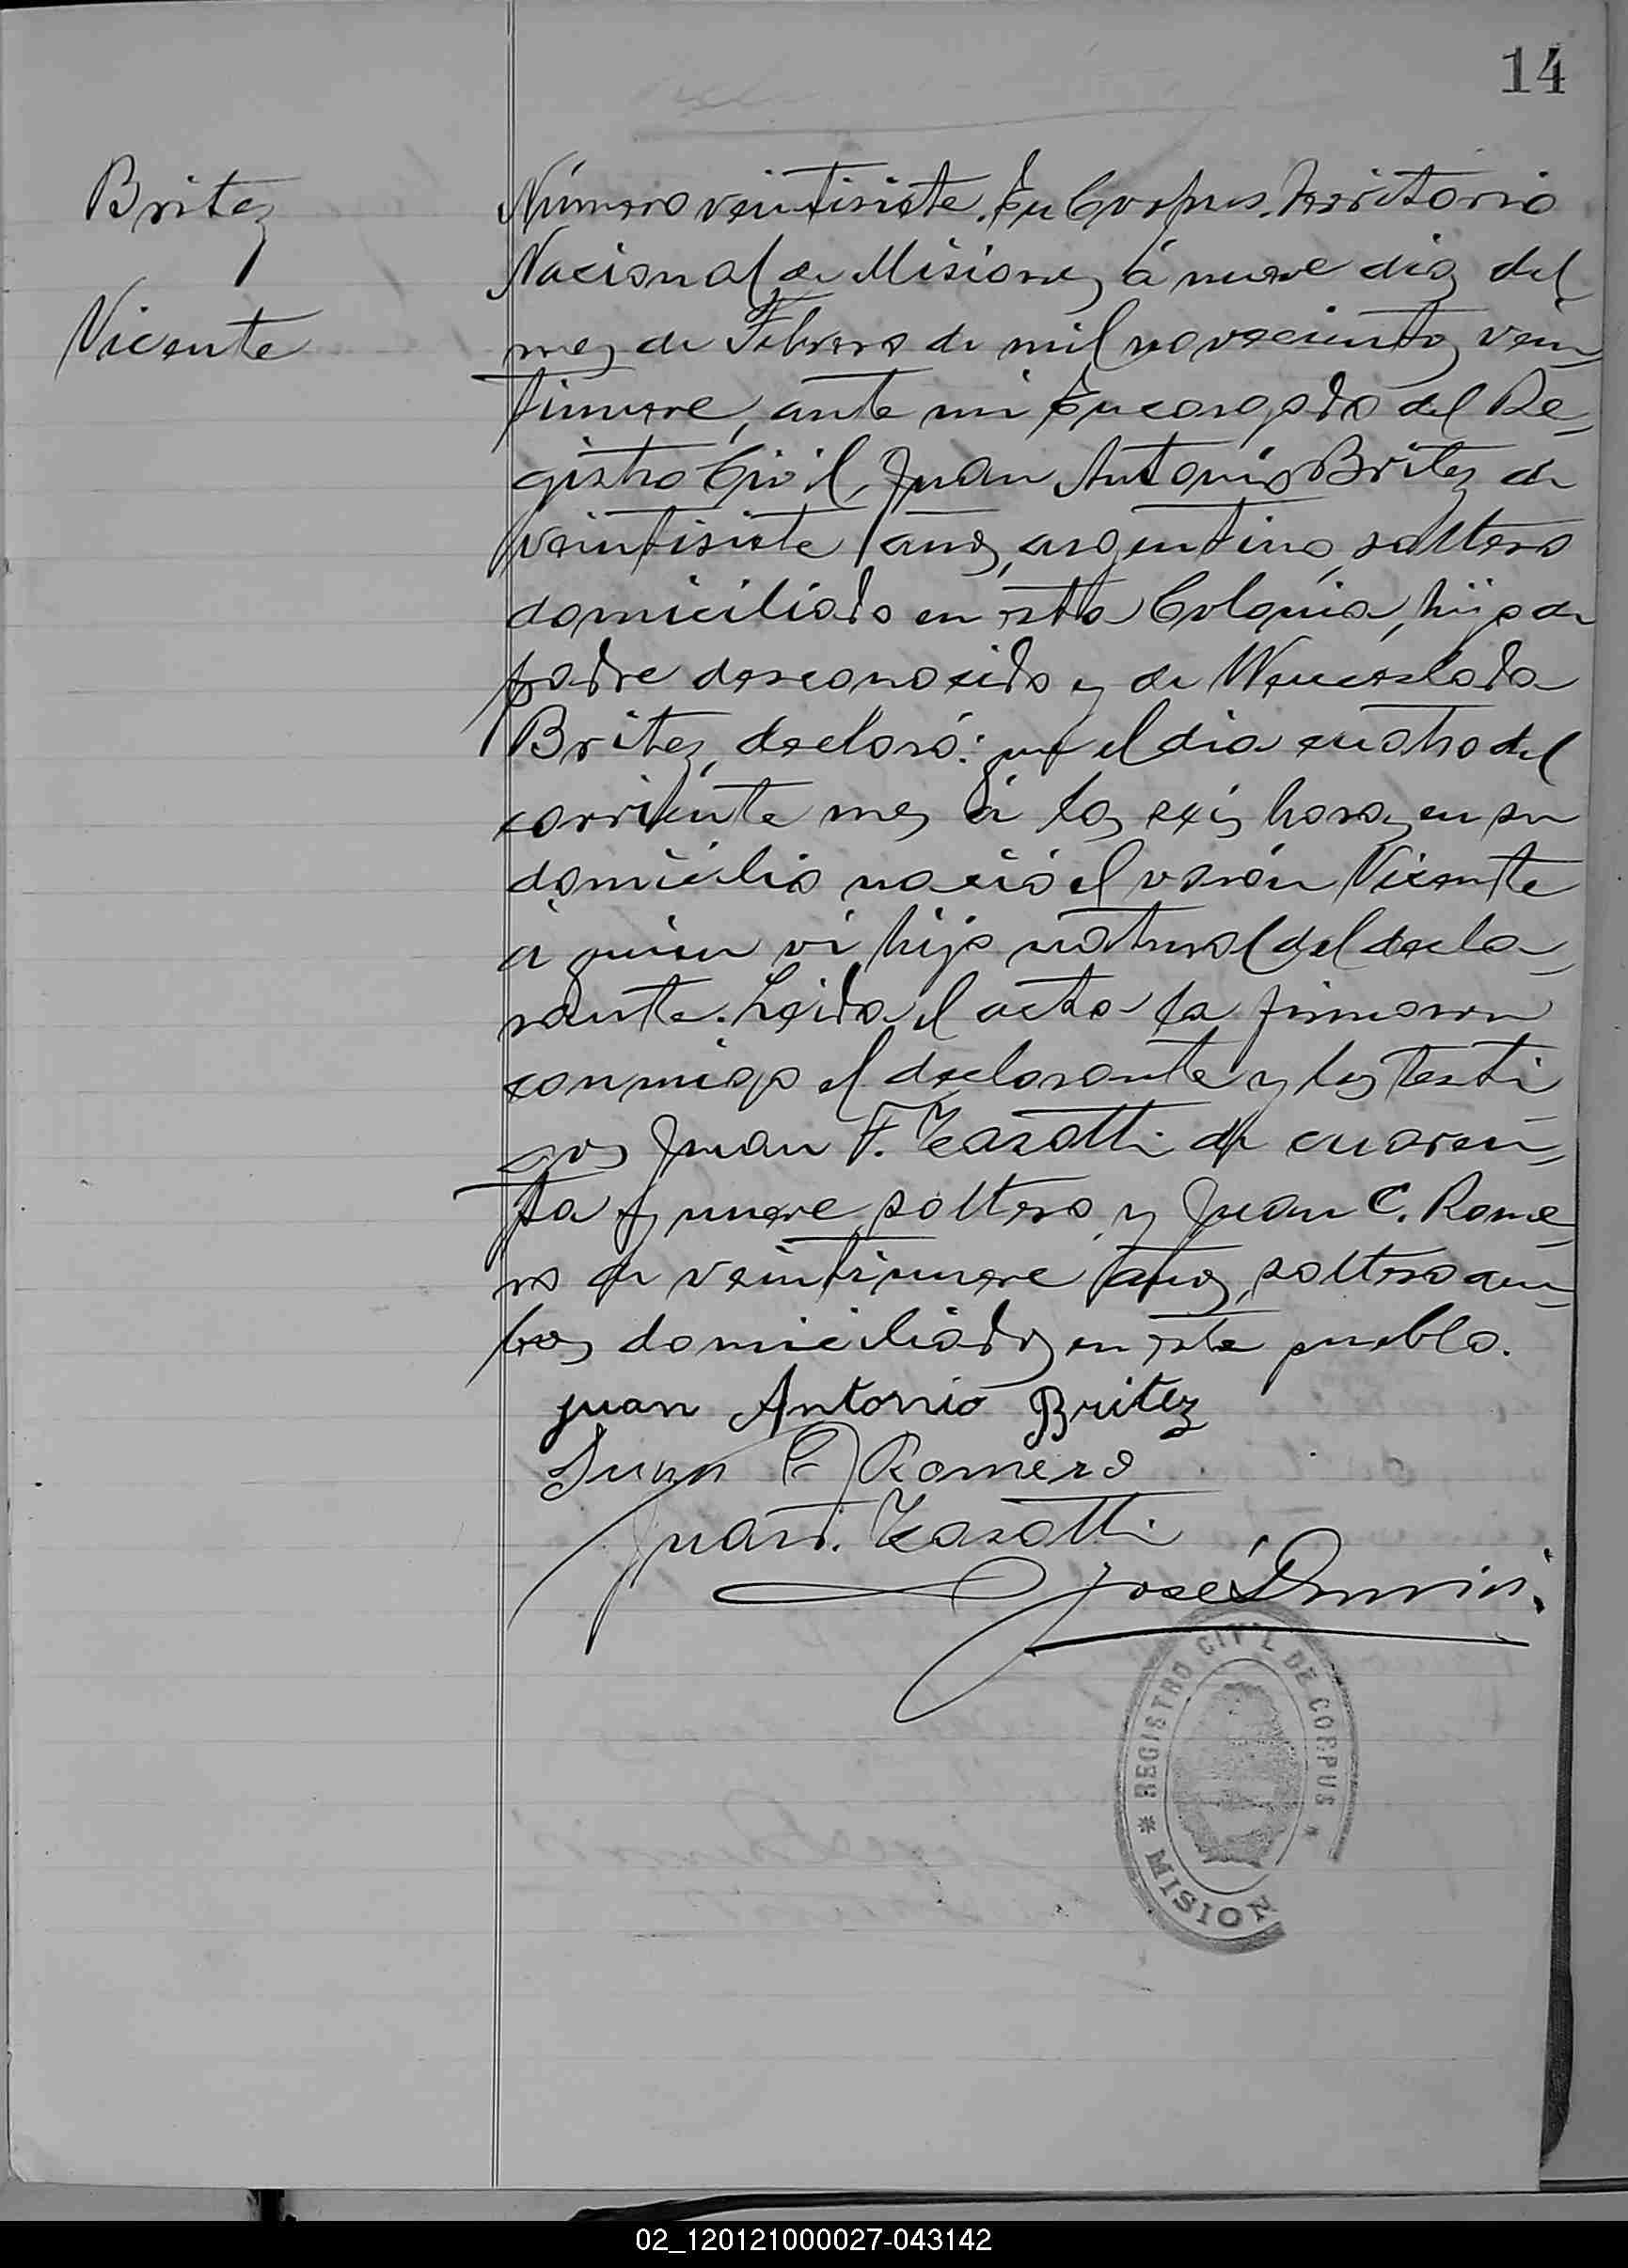 14
Britez
Vicente
Número veintisiete. En Corpus, Territorio
Nacional de Misiones á nueve dias del
mes de Febrero de mil novecientos vein-
tinueve, ante mi Encargado del Re-
gistro Civil, Juan Antonio Britez de
veintisiete años, argentino, soltero
domiciliado en esta Colonia, hijo de
padre desconocido y de Wenceslada
Britez, declaró: que el dia cuatro del
corriente mes á las seis horas en su
domicilio nació el varón Vicente
á quien vi hijo natural del decla-
rante. Leida el acta la firmaron
conmigo el declarante y los testi
gos Juan F. Zarotti de cuaren-
ta y nueve, soltero y Juan C. Rome-
ro de veintinueve años, soltero am-
bos domiciliados en este pueblo.
juan Antonio Britez
Juan C Romero
Juan F. Zarotti
José
REGISTRO CIVIL DE CORPUS
* MISION
02_120121000027-043142